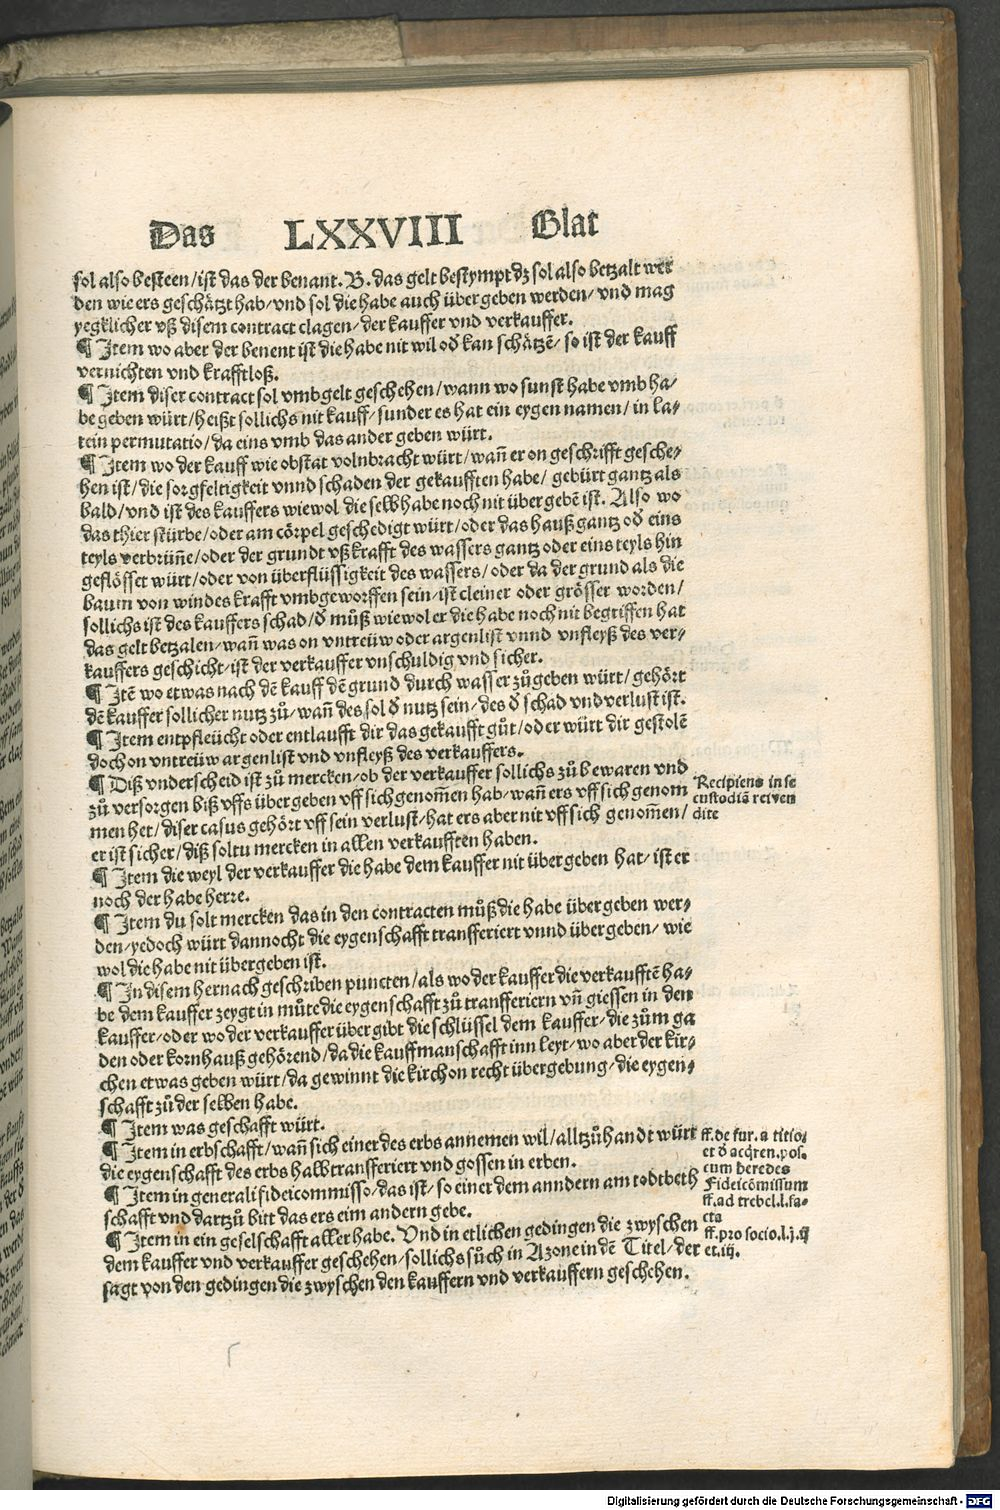 Das LXXVIII Blat
sol also besteen/ist das der benant. B. das gelt bestympt dz sol also betzalt wer
den wie ers geschätzt hab/vnd sol die habe auch übergeben werden/vnd mag
yegklicher vß disem contract clagen/der kauffer vnd verkauffer.
¶ Item wo aber der benent ist die habe nit wil oď kan schätzē/so ist der kauff
vernichten vnd krafftloß.
¶ Item diser contract sol vmb gelt geschehen/wann wo sunst habe vmb ha/
be geben würt/heißt sollichs nit kauff/sunder es hat ein eygen namen/in la/
tein permutatio/da eins vmb das ander geben würt.
¶ Item wo der kauff wie obstat volnbracht würt/wañ er on geschrifft gesche/
hen ist/die sorgfeltigkeit vnnd schaden der gekaufften habe/gebürt gantz als
bald/vnd ist des kauffers wiewol die selb habe noch nit übergebē ist. Also wo
das thier stürbe/oder am cörpel geschedigt würt/oder das hauß gantz oď eins
teyls verbrüñe/oder der grundt vß krafft des wassers gantz oder eins teyls hin
geflösset würt/oder von überflüssigkeit des wassers/oder da der grund als die
baum von windes krafft vmbgeworffen sein/ist cleiner oder grösser worden/
sollichs ist des kauffers schad/ď můß wiewol er die habe noch nit begriffen hat
das gelt betzalen/wañ was on vntreüw oder argenlist vnnd vnfleyß des ver/
kauffers geschicht/ist der verkauffer vnschuldig vnd sicher.
¶ Itē wo etwas nach dē kauff dē grund durch wasser zůgeben würt/gehört
dē kauffer sollicher nutz zů/wañ des sol ď nutz sein/des ď schad vnd verlust ist.
¶ Item entpfleücht oder entlaufft dir das gekaufft gůt/oder würt dir gestolē
doch on vntreüw argenlist vnd vnfleyß des verkauffers.
¶ Diß vnderscheid ist zů mercken/ob der verkauffer sollichs zů bewaren vnd
zů versorgen biß vffs übergeben vff sich genom̄en hab/wañ ers vff sich genom
men het/diser casus gehört vff sein verlust/hat ers aber nit vff sich genom̄en/
er ist sicher/diß soltu mercken in allen verkaufften haben.
Recipiens in se
custodiā rei ven
dite
¶ Item die weyl der verkauffer die habe dem kauffer nit übergeben hat/ist er
noch der habe herre.
¶ Item du solt mercken das in den contracten můß die habe übergeben wer/
den/yedoch würt dannocht die eygenschafft transferiert vnnd übergeben/wie
wol die habe nit übergeben ist.
¶ In disem hernach geschriben puncten/als wo der kauffer die verkaufftē ha/
be dem kauffer zeygt in můte die eygenschafft zů transferiern vñ giessen in den
kauffer/oder wo der verkauffer übergibt die schlüssel dem kauffer/die zům ga
den oder kornhauß gehörend/da die kauffmanschafft inn leyt/wo aber der kir/
chen etwas geben würt/da gewinnt die kirch on recht übergebung/die eygen/
schafft zů der selben habe.
¶ Item was geschafft würt.
¶ Item in erbschafft/wañ sich einer des erbs annemen wil/alltzůhandt würt
die eygenschafft des erbs halb transferiert vnd gossen in erben.
¶ Item in generali fideicommisso/das ist/so einer dem anndern am todtbeth
schafft vnd dartzů bitt das ers eim andern gebe.
¶ Item in ein geselschafft aller habe. Vnd in etlichen gedingen die zwyschen
dem kauffer vnd verkauffer geschehen/sollichs sůch in Azone in dē Titel/der
sagt von den gedingen die zwyschen den kauffern vnd verkauffern geschehen.
ff. de fur. a titio/
et ď acq̄ren. pos.
cum heredes
Fideicōmissum
ff. ad trebel. l. fa/
cta
ff. pro socio. l. j. ij
et. iij.
Digitalisierung gefördert durch die Deutsche Forschungsgemeinschaft - DFG